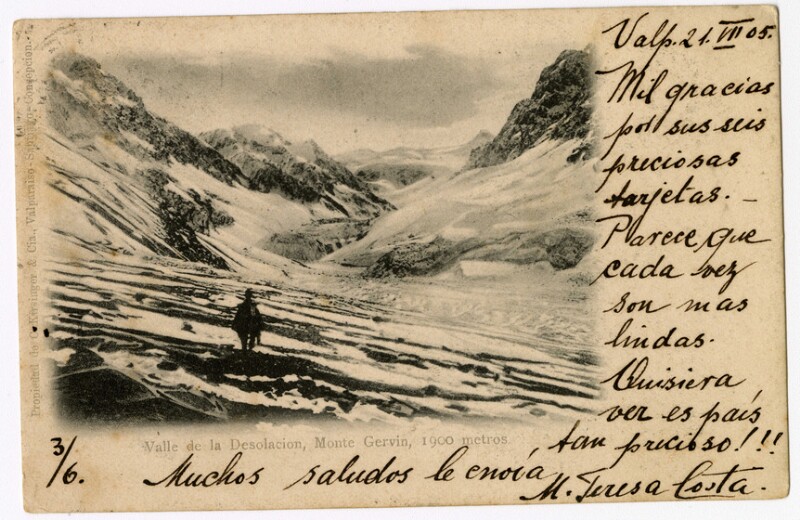 Valp. 21. VII 05.
Mil gracias
por sus seis
preciosas
tarjetas. –
Parece, que
cada vez
son mas
lindas.
Quisiera
ver es país
tan precioso!!!
Muchos saludos le envía
M. Teresa Costa.
3/6.
Valle de la Desolacion, Monte Gervin, 1900 metros
Propiedad de C. Kirsinger & Cia., Valparaiso-Santiago-Concepcion.